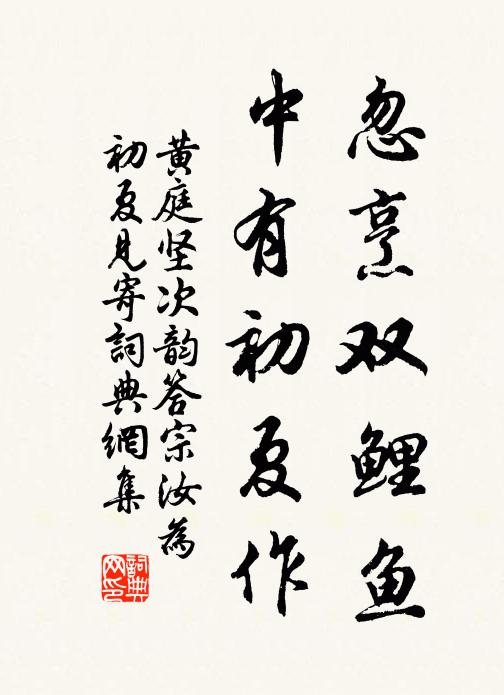 忽烹双鲤鱼
中有初夏作
黄庭坚次韵答宗汝為
初夏見寄詞典網集
詞典
网印